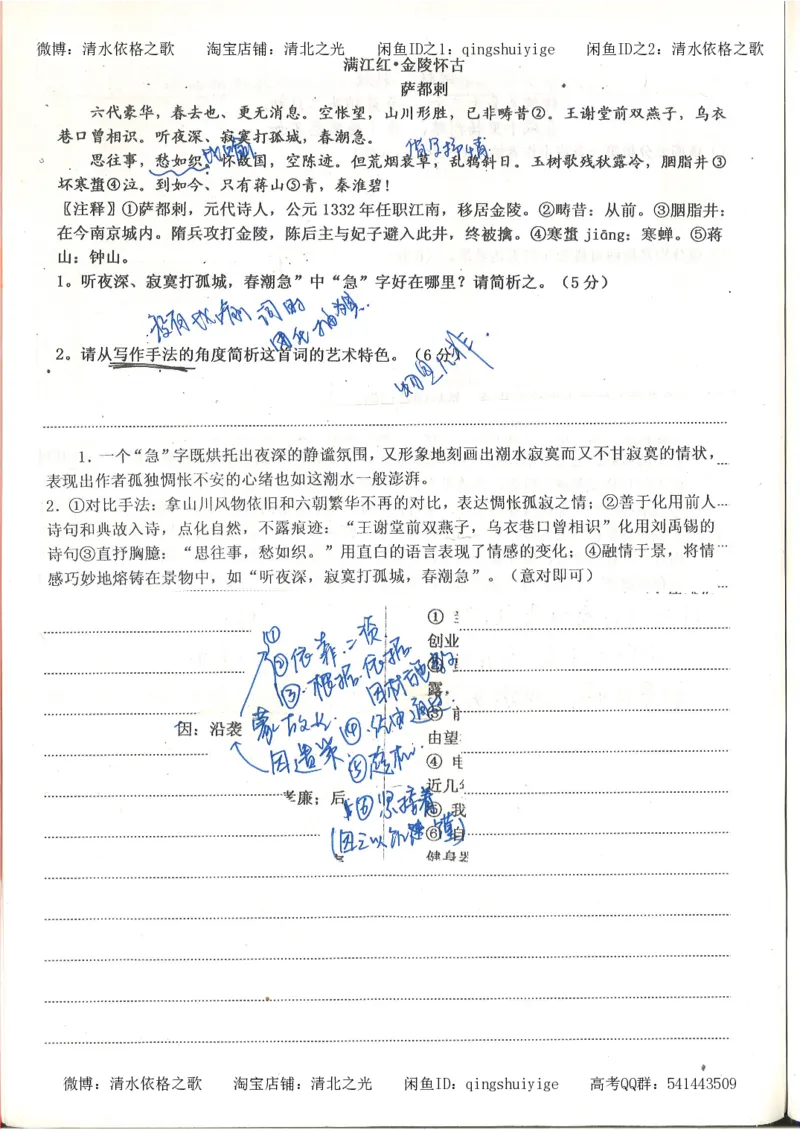 微博：清水依格之歌 淘宝店铺：清北之光 闲鱼ID之1：qingshuiyige 闲鱼ID之2：清水依格之歌
满江红•金陵怀古
萨都剌
六代豪华，春去也、更无消息。空怅望，山川形胜，已非畴昔②。王谢堂前双燕子，乌衣
巷口曾相识。听夜深、寂寞打孤城，春潮急。
比喻
借景抒情
思往事，愁如织。怀故国，空陈迹。但荒烟衰草，乱鸦斜日。玉树歌残秋露冷，胭脂井③
坏寒螀④泣。到如今、只有蒋山⑤青，秦淮碧！
〖注释〗①萨都剌，元代诗人，公元 1332 年任职江南，移居金陵。②畴昔：从前。③胭脂井：
在今南京城内。隋兵攻打金陵，陈后主与妃子避入此井，终被擒。④寒螀 jiāng：寒蝉。⑤蒋
山：钟山。
1。听夜深、寂寞打孤城，春潮急”中“急”字好在哪里？请简析之。（5 分）
2。请从写作手法的角度简析这首词的艺术特色。（6 分）
1．一个“急”字既烘托出夜深的静谧氛围，又形象地刻画出潮水寂寞而又不甘寂寞的情状，
表现出作者孤独惆怅不安的心绪也如这潮水一般澎湃。
2．①对比手法：拿山川风物依旧和六朝繁华不再的对比，表达惆怅孤寂之情；②善于化用前人
诗句和典故入诗，点化自然，不露痕迹：“王谢堂前双燕子，乌衣巷口曾相识”化用刘禹锡的
诗句③直抒胸臆：“思往事，愁如织。”用直白的语言表现了情感的变化；④融情于景，将情
感巧妙地熔铸在景物中，如“听夜深，寂寞打孤城，春潮急”。（意对即可）
①
②依靠
③根据 依据
因材施教
因：沿袭
蒙故业
因遗策
④经由 通过
⑤趁机
孝廉；后
⑥紧接着
创业
露，
由望
④ 电
近几
⑤ 我
⑥ 自
健身
微博：清水依格之歌 淘宝店铺：清北之光 闲鱼ID：qingshuiyige 高考QQ群：541443509